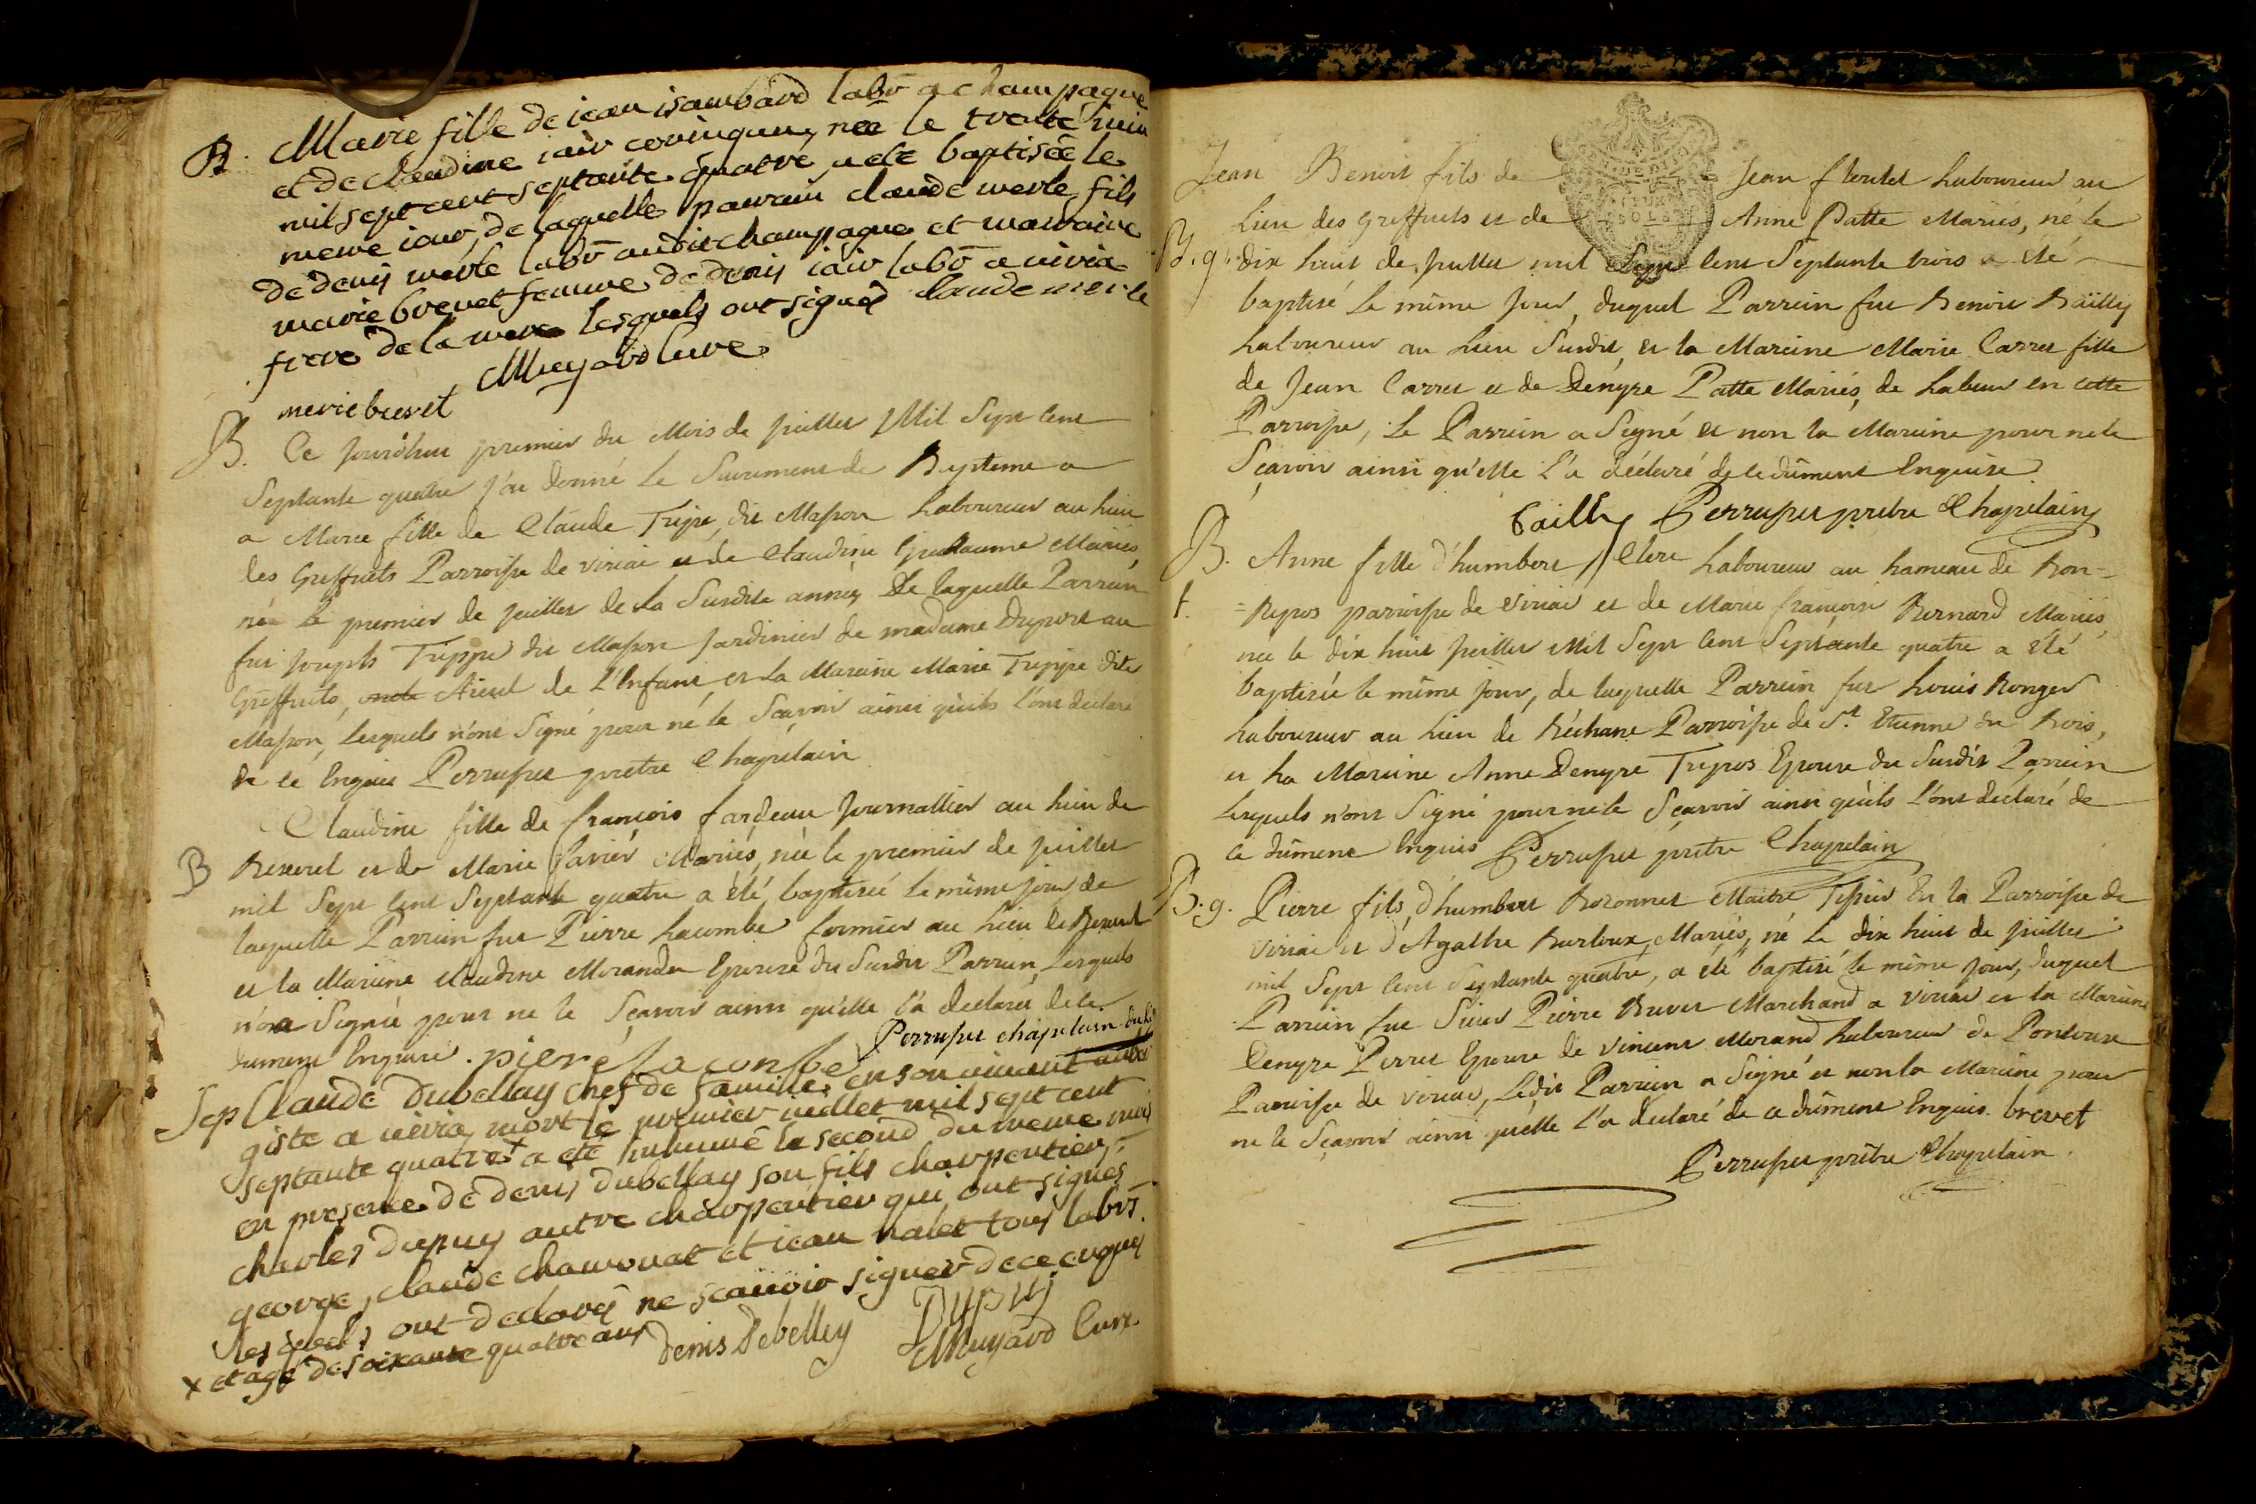 B. Marie fille de jean isambard labō a champagne
et de claudine iair couvingeur, neē le trente iuin
mil sept cent septante quatre, a eté baptisée le
meme iour, de laquelle parrain claude merle fils
de denis merle labō audit champagne et marraine
marie brevet femme de denis iair labō a viria
frere de la mere lesquels ont signés claude merle
Muyard Cure
marie brevet
B. Ce jourdhui premier du Mois de juillet Mil Sept Cent
Septante quatre j'ai donné le Sacrement de Baptême a
a Marie fille de Claude Tripe, dit Masson Laboureur au Lieu
des Greffuits Parroisse de viriat et de Claudine Guillaume Mariés,
née le premier de juillet de la Susdite année, De laquelle Parrain
fut Joseph Trippe dit Masson Jardinier de madame Duport au
Greffuits, Aieul de L'Enfant, et La Maraine Marie Trippe dite
Masson, lesquels n'ont Signé pour ne le Sçavoir ainsi qu'ils l'ont declaré
de ce Enquis Perruset prêtre Chapelain
Claudine fille de françois fardeau Journallier au Lieu de
B Beseret et de Marie Mariés, née le premier de juillet
mil Sept Cent Septante quatre a été baptisée le même jour de
laquelle Parrain fut Pierre Lacombe fermier au Lieu de
et la Maraine Claudine Morandas Epouse du Susdit Parrain, Lesquels
n'on Signé pour ne le Sçavoir ainsi qu'elle l'a declaré de ce
dument Enquise. pierre laconbe Perruset chapelain
Sep Claude Dubellay chef de famille, en son vivant
giste a viria, mort le premier iuillet mil sept cent
septante quatre x a eté inhumé le second du meme mois
en presence de denis dubellay son fils charpentier,
charles dupuy autre charpentier qui ont signés
george, claude chamonat et iean nalet tous labrs.
lesquels ont declarés ne scauoir signer de ce enquis
x et agé de soixante quatre ans denis debelley Dupuy
Muyard Cure
Jean Benoit fils de Jean floutet Laboureur au
Lieu des Greffuits et de Anne Patte Mariés, né le
B. g. dix huit de juillet mil Sept Cent Septante trois a été
baptisé le même Jour, duquel Parrain fut Benoit Bailly
Laboureur au Lieu Susdit, et la Maraine Marie Carret fille
de Jean Carret et de Denyse Patte Mariés, de Labeur en cette
Parroisse, Le Parrain a Signé et non la Maraine pour ne le
Sçavoir ainsi qu'elle l'a déclaré de ce dûment Enquise
bailly Perruset pretre Chapelain
B. Anne fille d'humbert Clere Laboureur au hameau de Bon-
f. =Repos parroisse de viriat et de Marie françoise Bernard Mariés,
née le dix huit Juillet Mil Sept Cent Septante quatre a été
baptisée le même Jour, de laquelle Parrain fut Louis Ronger
Laboureur au Lieu de Béchane Parroisse de St. Etienne du Bois,
et La Maraine Anne Denyse Tripos Epouse du Susdit Parrain
Lesquels n'ont Signé pour ne le Sçavoir ainsi qu'ils l'ont déclaré de
ce dûment Enquis Perruset prêtre Chapelain
B. g. Pierre fils d'humbert Bozonnet Maitre Tissier En la Parroisse de
viriat et d'Agathe Mariés, né le dix huit de juillet
mil Sept Cent Septante quatre, a été baptisé le même jour, duquel
Parrain fut Sieur Pierre Brevet Marchand a viriat et la Maraine
Denyse Perret Epouse de vincent Morand Laboureur de
Parroisse de viriat, Ledit Parrain a Signé et non la Maraine pour
ne le Sçavoir ainsi qu'elle l'a declaré de ce dûment Enquis. brevet
Perruset prêtre Chapelain.